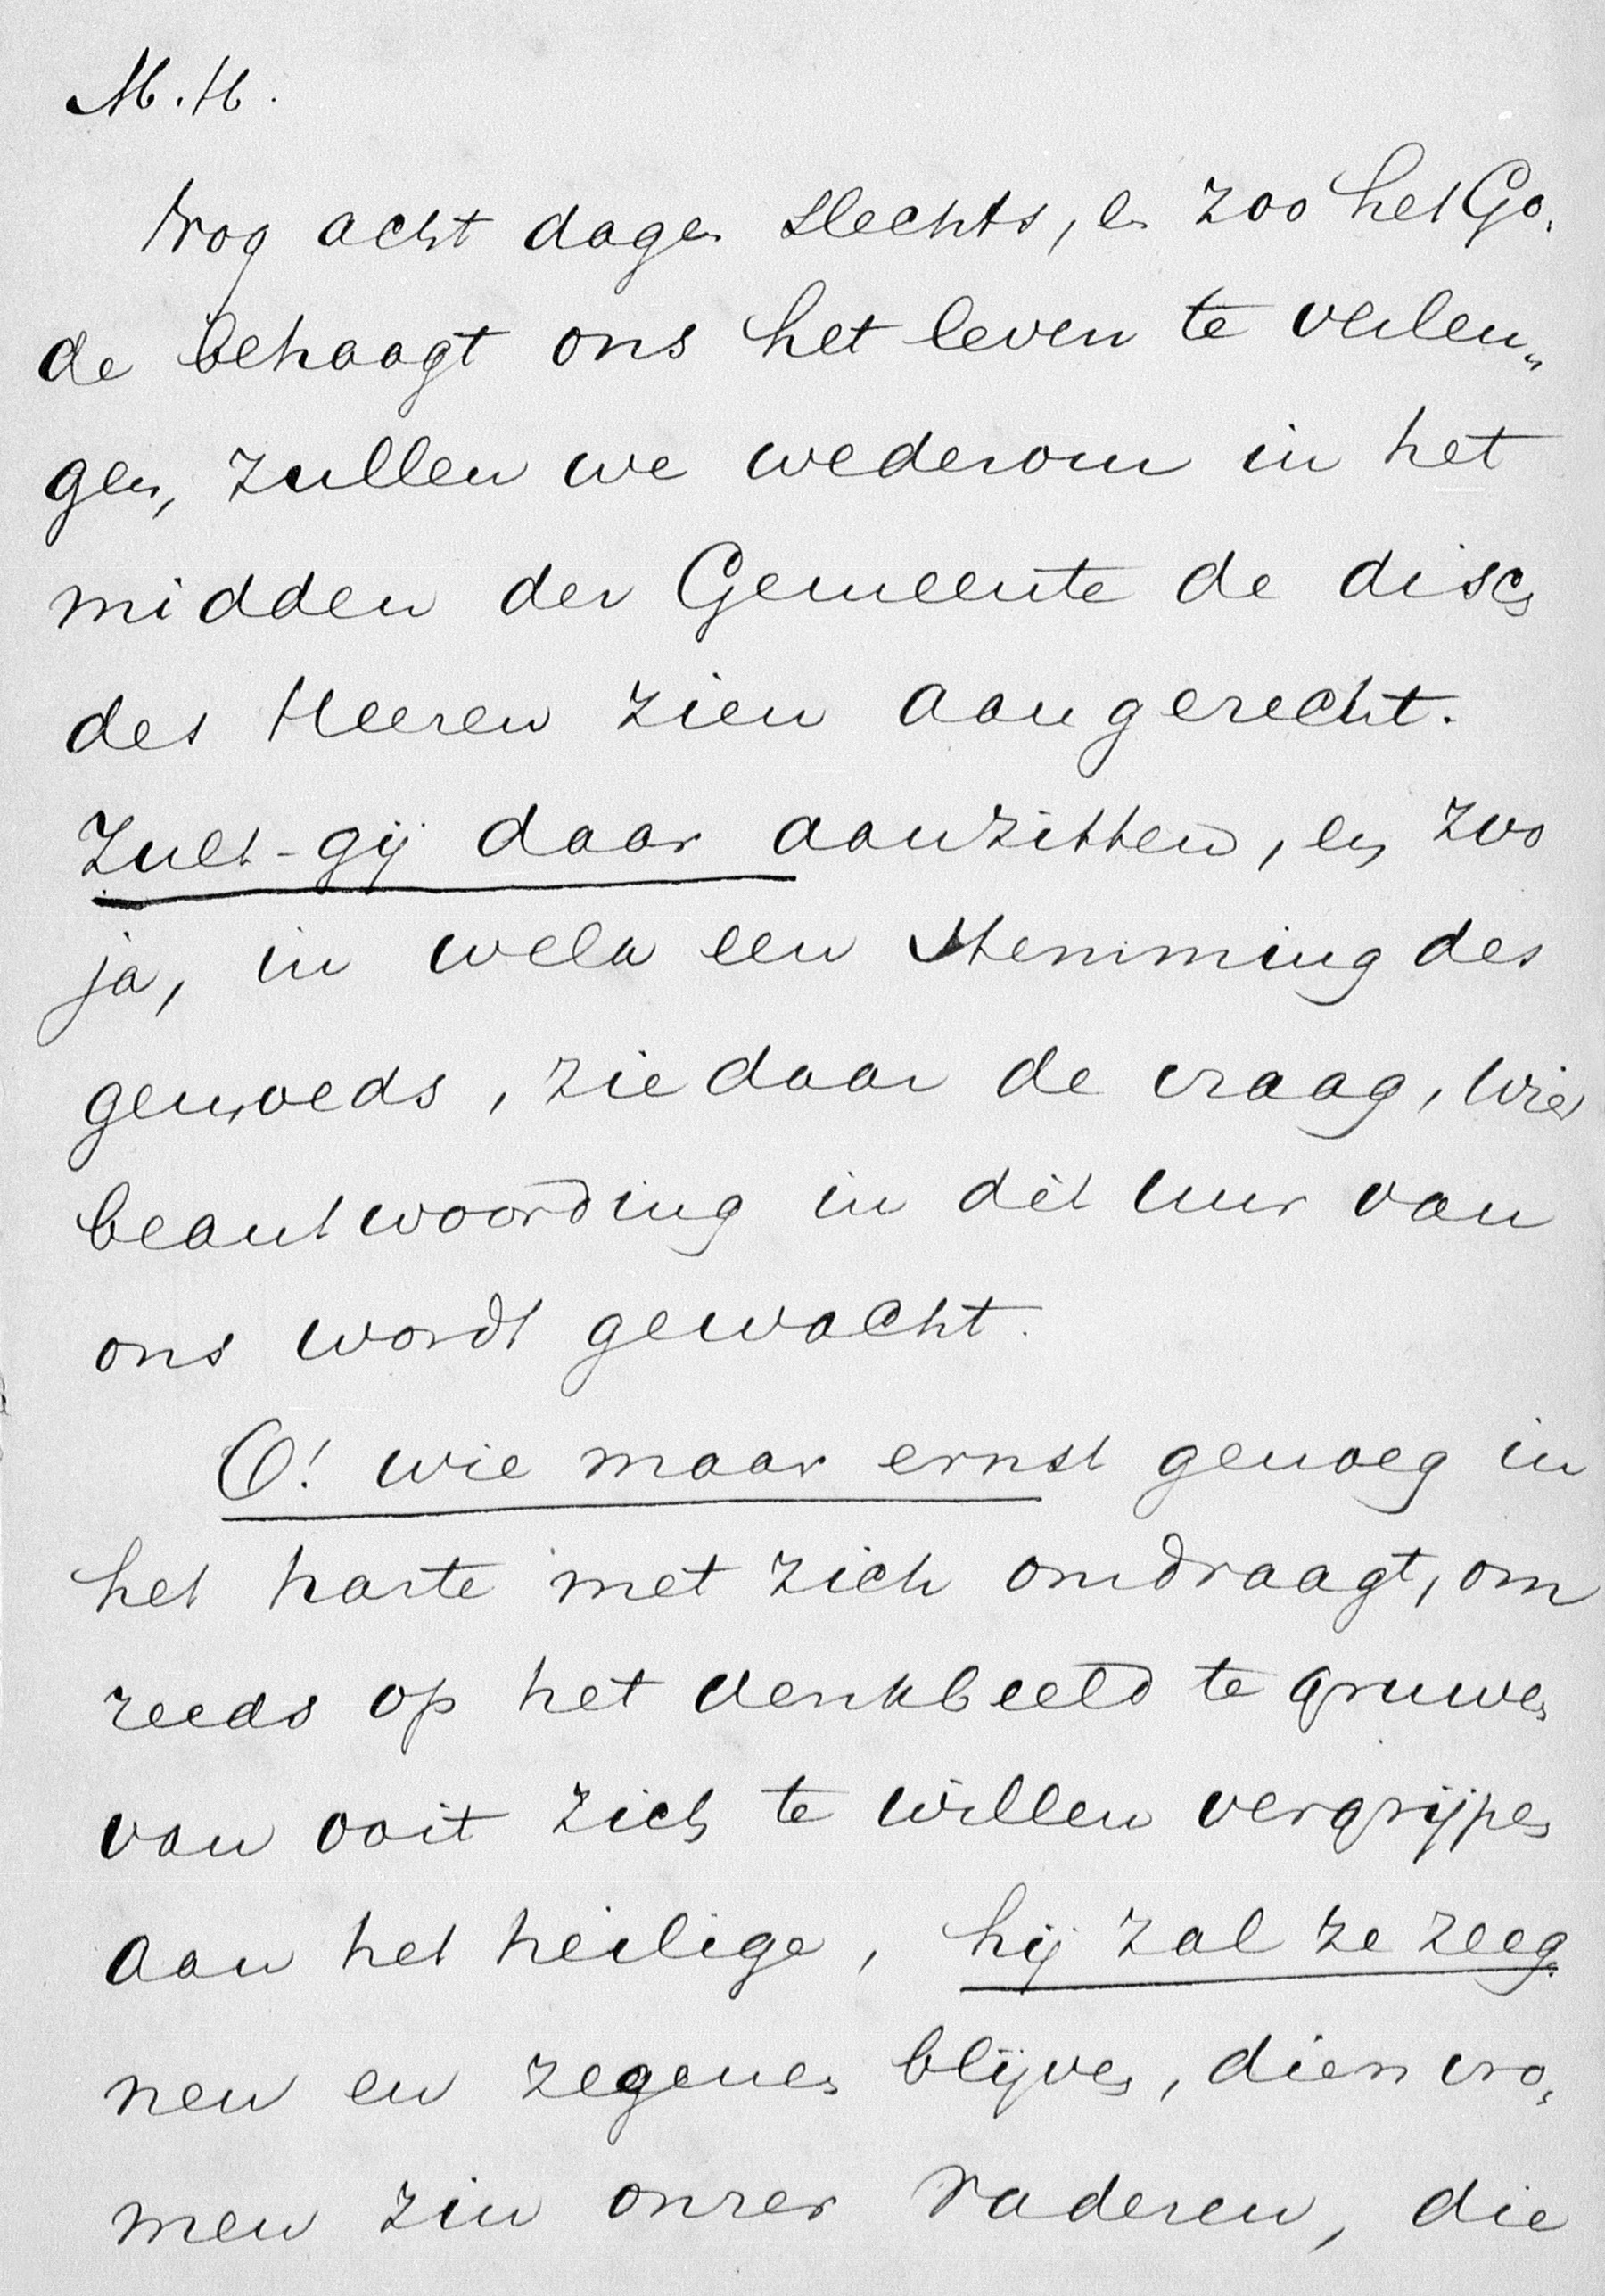 M. H.
Nog acht dagen slechts, en zoo het Go-
de behaagt ons het leven te verlen-
gen, zullen we wederom in het
midden der Gemeente de disch
des Heeren zien aangerecht.
Zult-gij daar aanzitten, en zoo
ja, in welk een stemming des
gemoeds, ziedaar de vraag, wier
beantwoording in dit uur van
ons wordt gewacht.
O! wie maar ernst genoeg in
het harte met zich omdraagt, om
reeds op het denkbeeld te gruwen
van ooit zich te willen vergrijpen
aan het heilige, hij zal ze zeeg-
nen en zegenen blijven, dien vro-
men zin onzer Vaderen, die